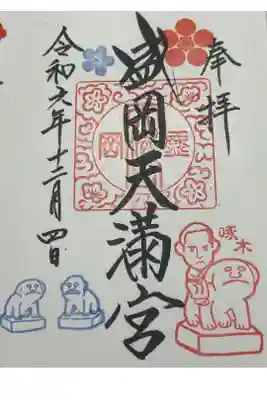 奉拝
盛岡天満宮
令和六年十二月四日
啄木